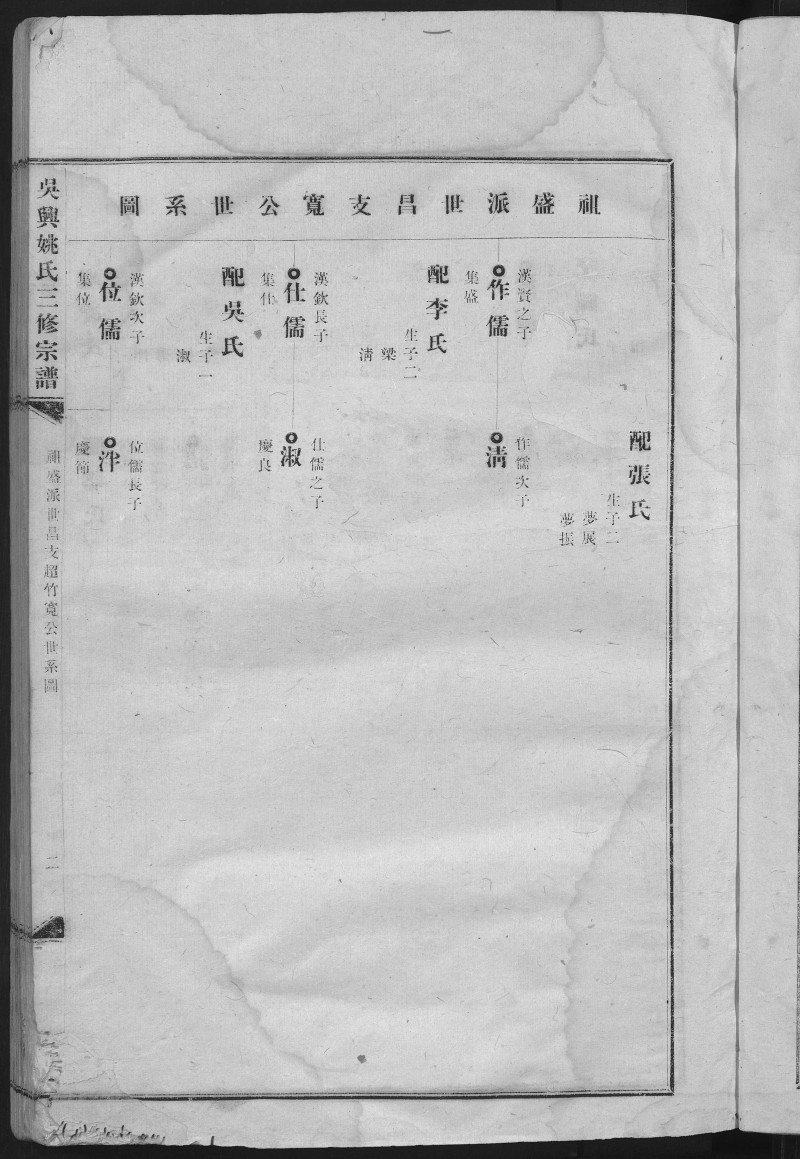 祖盛派世昌支寬公世系圖
配張氏
生子二
夢展
夢振
漢賢之子
作儒
集盛
作儒次子
淸
配李氏
生子二
樑
淸
漢欽長子
仕儒
集仕
仕儒之子
淑
慶良
配吳氏
生子一
淑
漢欽次子
位儒
集位
位儒長子
泮
慶節
吳興姚氏三修宗譜
祖盛派世昌支超竹寬公世系圖
二